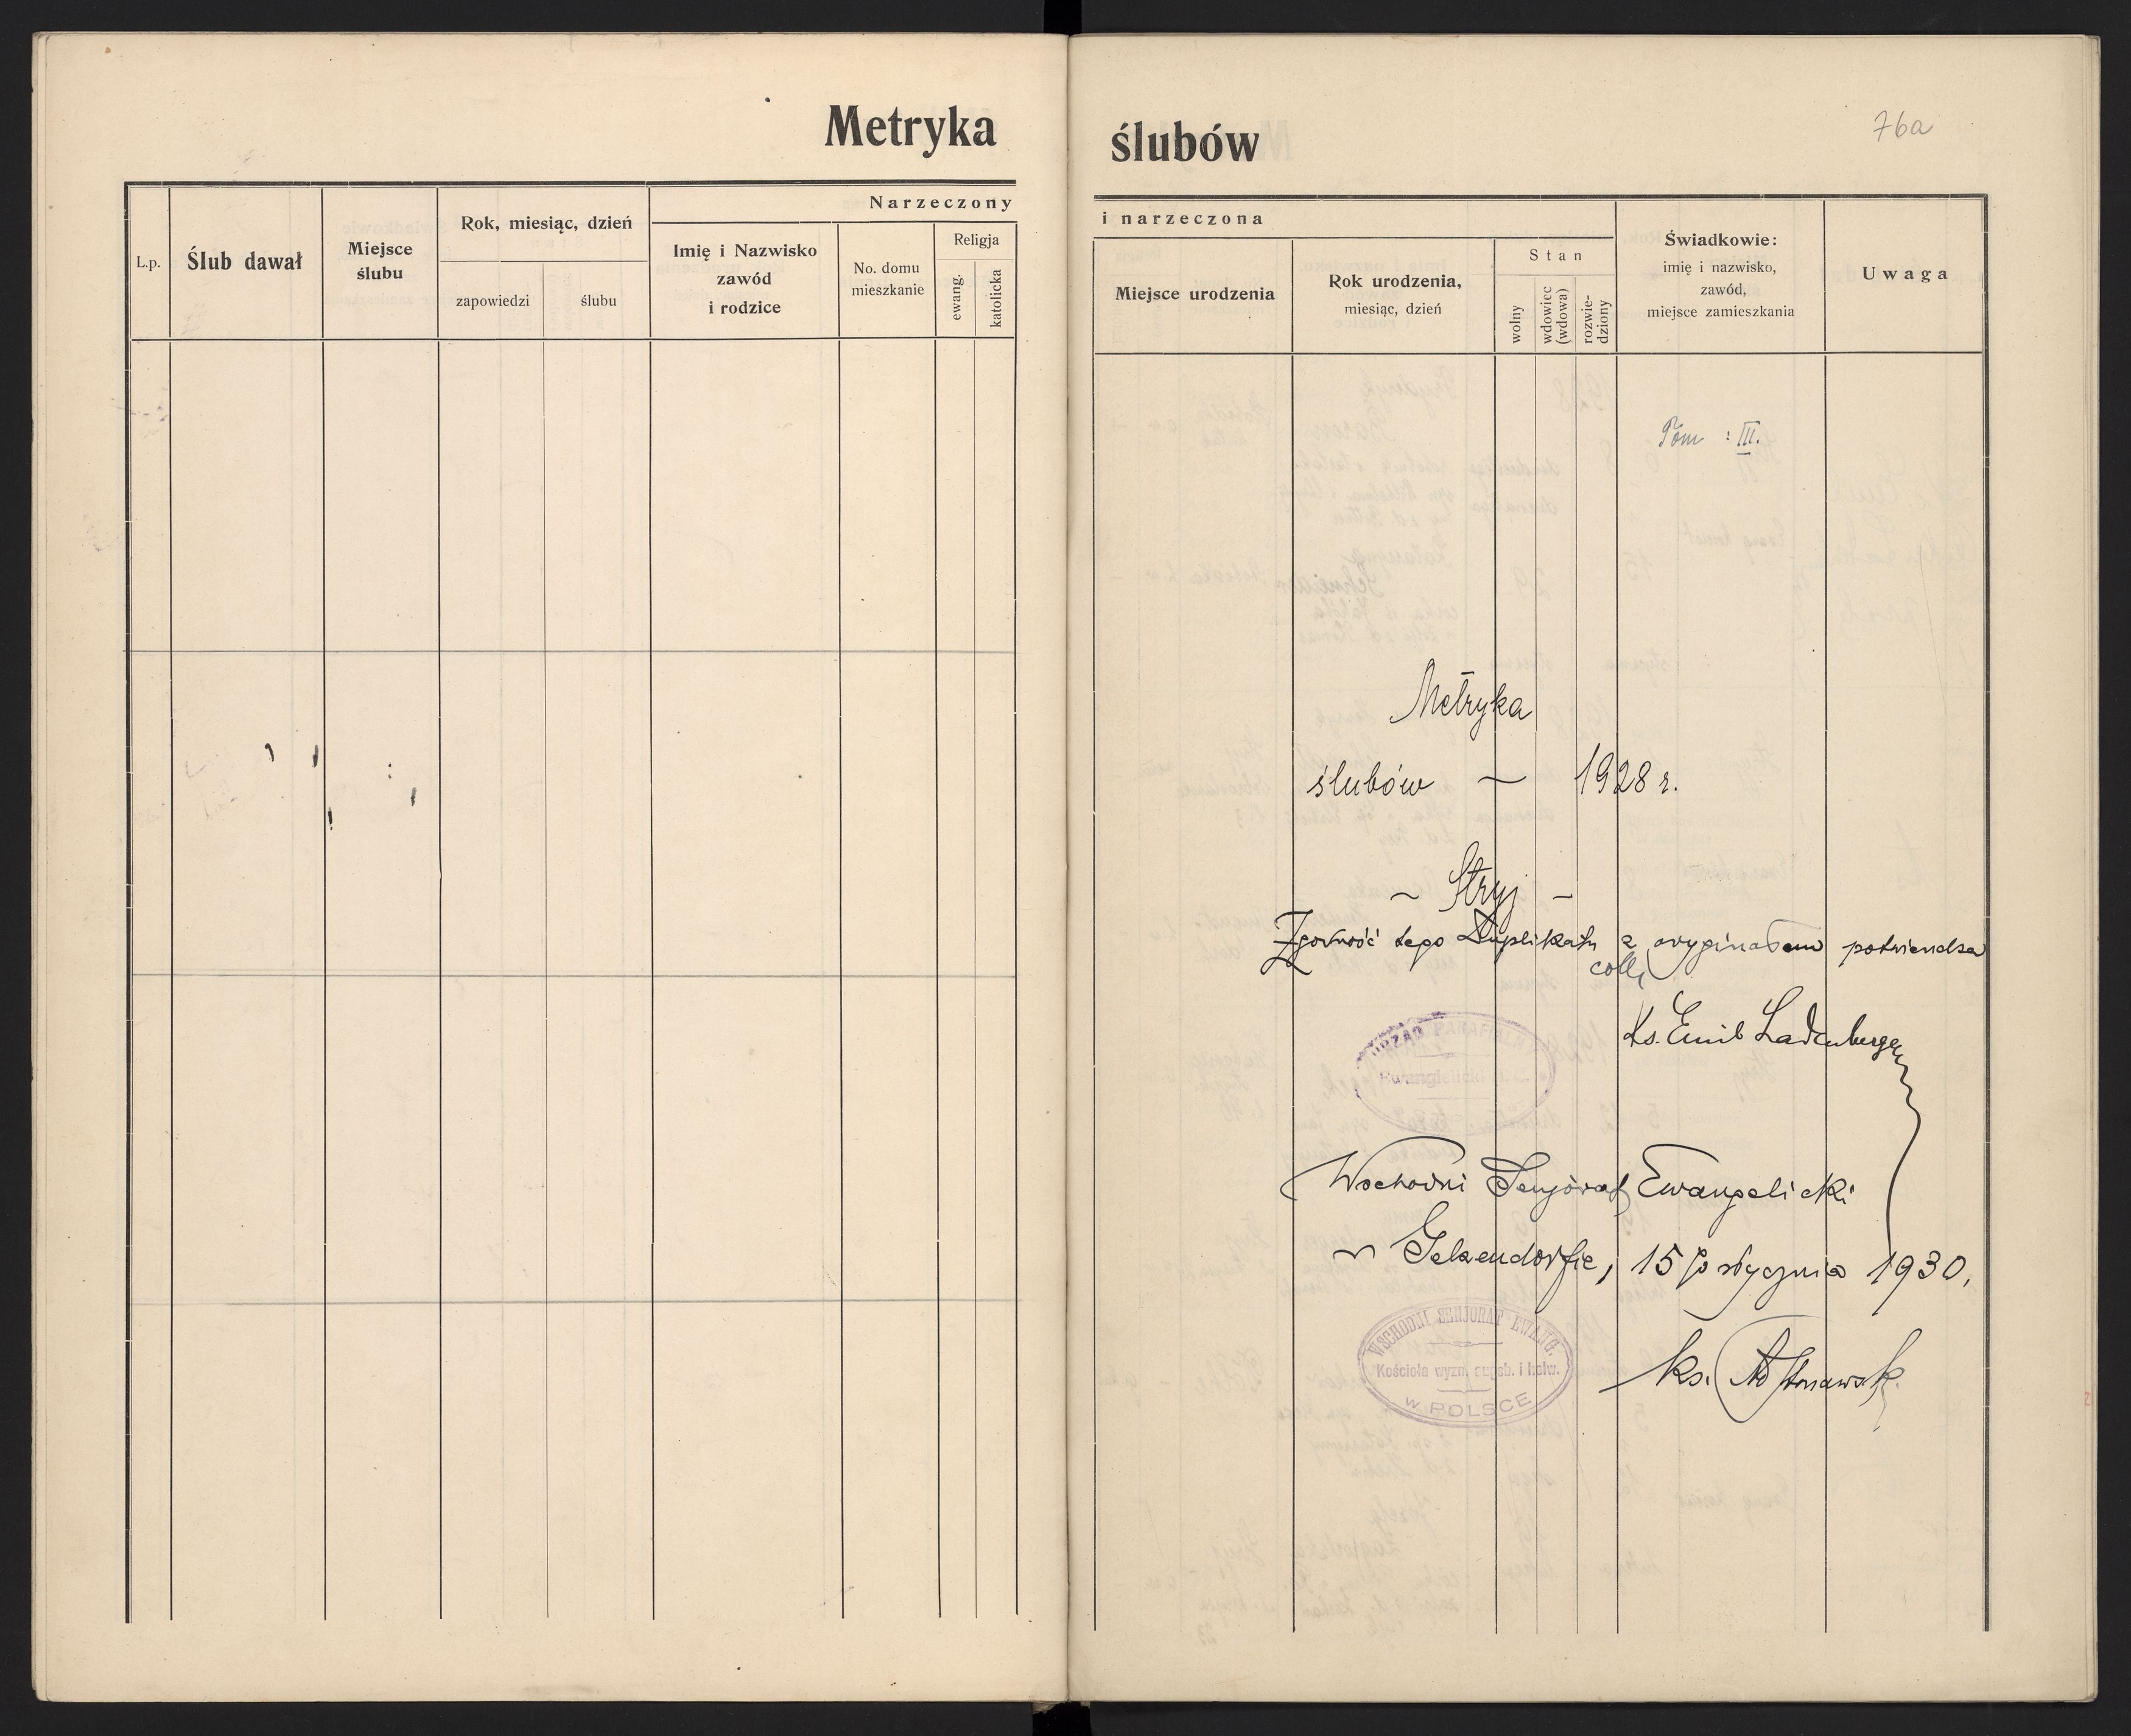 Metryka
ślubów
76a
L.p.
Ślub dawał
Miejsce
ślubu
Rok, miesiąc, dzień
zapowiedzi
ślubu
Narzeczony
Imię i Nazwisko
zawód
i rodzice
No. domu
mieszkanie
Religja
ewang.
katolicka
i narzeczona
Miejsce urodzenia
Rok urodzenia,
miesiąc, dzień
Stan
wolny
wdowiec
(wdowa)
rozwie-
dziony
Świadkowie:
imię i nazwisko,
zawód,
miejsce zamieszkania
Uwaga
Tom : III.
Metryka
ślubów — 1928 r.
~ Stryj -
Zgodność tego Duplikatu z oryginałem potwierdza
Ks. Emil Ladenberger
URZĄD PARAFIALNY
Ewangielicki
Wschodni Senjorat Ewangelicki
w Gelsendorfie, 15go stycznia 1930.
WSCHODNI SENJORAT EWANG.
Kościoła wyzn. augsb. i helw.
W POLSCE
ks.